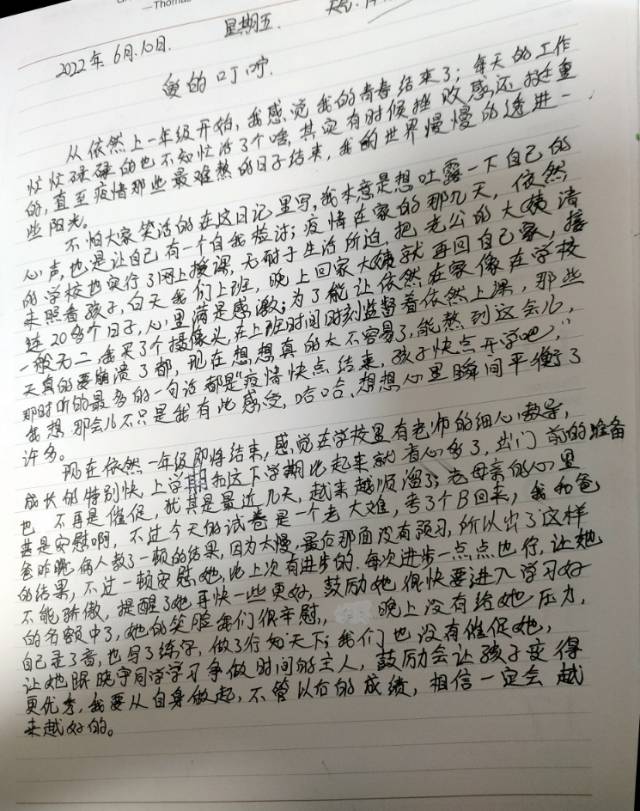 —Thomas
2022年 6月.10日. 星期五 天气:
爱的叮咛.
从依然上一年级开始,我感觉我的青春结束了;每天的工作
忙忙碌碌的也不知忙活了个啥,其实有时候挫败感还挺重
的,直至疫情那些最难熬的日子结束,我的世界慢慢的透进一
些阳光。
不怕大家笑活的在这日记里写,我本意是想吐露一下自己的
心声,也是让自己有一个自我检讨;疫情在家的那几天,依然
的学校也实行了网上授课,无耐于生活所迫,把老公的大姨请
来照看孩子,白天我们上班,晚上回家大姨就再回自己家,接
连20多个日子,心里满是感激;为了能让依然在家像在学校
一般无二我买了个摄像头,在上班时间时刻监督着依然上课,那些
天真的要崩溃了都,现在想想真的太不容易了,能熬到这会儿,
那时听的最多的一句话都是"疫情快点结束,孩子快点开学吧",
我想那会儿不只是我有此感受,哈哈,想想心里瞬间平衡了
许多。
现在依然一年级即将结束,感觉在学校里有老师的细心教导,
成长的特别快,上学期和这下学期比起来就省心多了,出门前的准备
也不再是催促,尤其是最近几天,越来越顺溜了;老母亲的心里
甚是安慰啊,不过今天的试卷是一个老大难,考了个B回来,我和爸
爸昨晚俩人教了一顿的结果,因为太慢,最后那面没有预习,所以出了这样
的结果,不过一顿安慰她,比上次有进步的.每次进步一点点也行,让她
不能骄傲,提醒了她再快一些更好,鼓励她很快要进入学习好
的名额中了,她的笑脸我们很辛慰, 晚上没有给她压力,
自己录了音,也写了练字,做了行知天下;我们也没有催促她,
让她跟晓宇同学学习争做时间的主人,鼓励会让孩子变得
更优秀,我要从自身做起,不管以后的成绩,相信一定会越
来越好的。